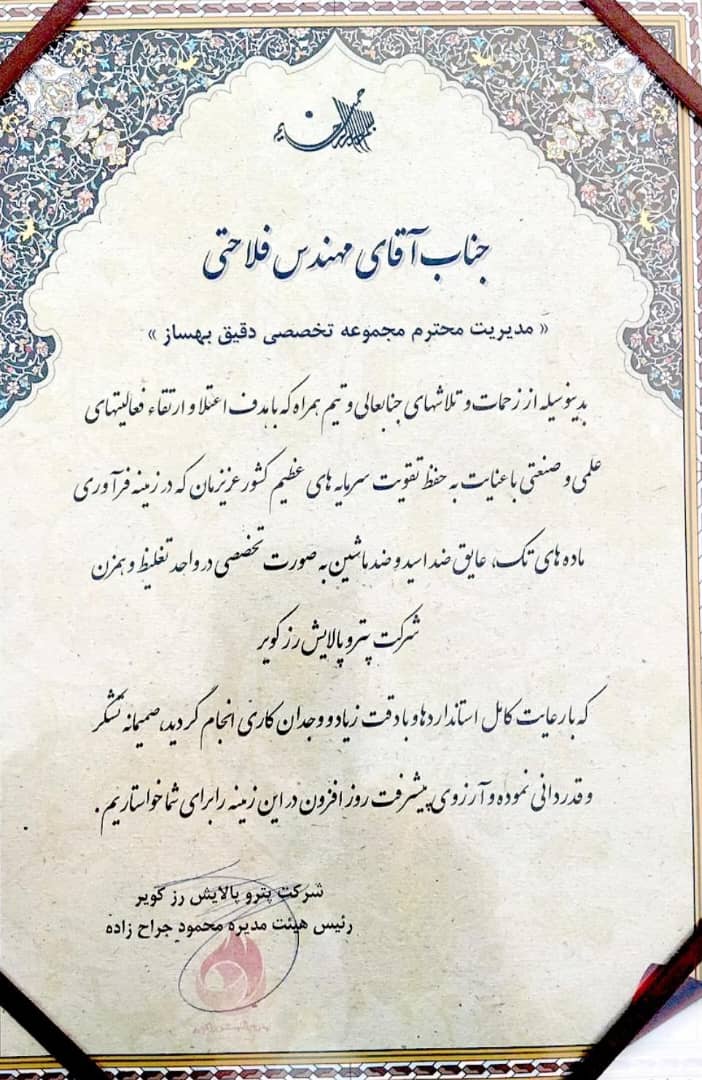 بسم الله الرحمن الرحیم
جناب آقای مهندس فلاحتی
« مدیریت محترم مجموعه تخصصی دقیق بهساز »
بدینوسیله از زحمات و تلاشهای جنابعالی و تیم همراه که با هدف اعتلا و ارتقاء فعالیتهای
علمی و صنعتی با عنایت به حفظ تقویت سرمایه های عظیم کشور عزیزمان که در زمینه فرآوری
ماده های تک، عایق ضد اسید و ضد ماشین به صورت تخصصی در واحد تغلیظ و همزن
شرکت پترو پالایش رز کویر
که با رعایت کامل استانداردها و با دقت زیاد و وجدان کاری انجام گردید، صمیمانه تشکر
و قدردانی نموده و آرزوی پیشرفت روز افزون در این زمینه را برای شما خواستاریم .
شرکت پترو پالایش رز کویر
رئیس هیئت مدیره محمود جراح زاده